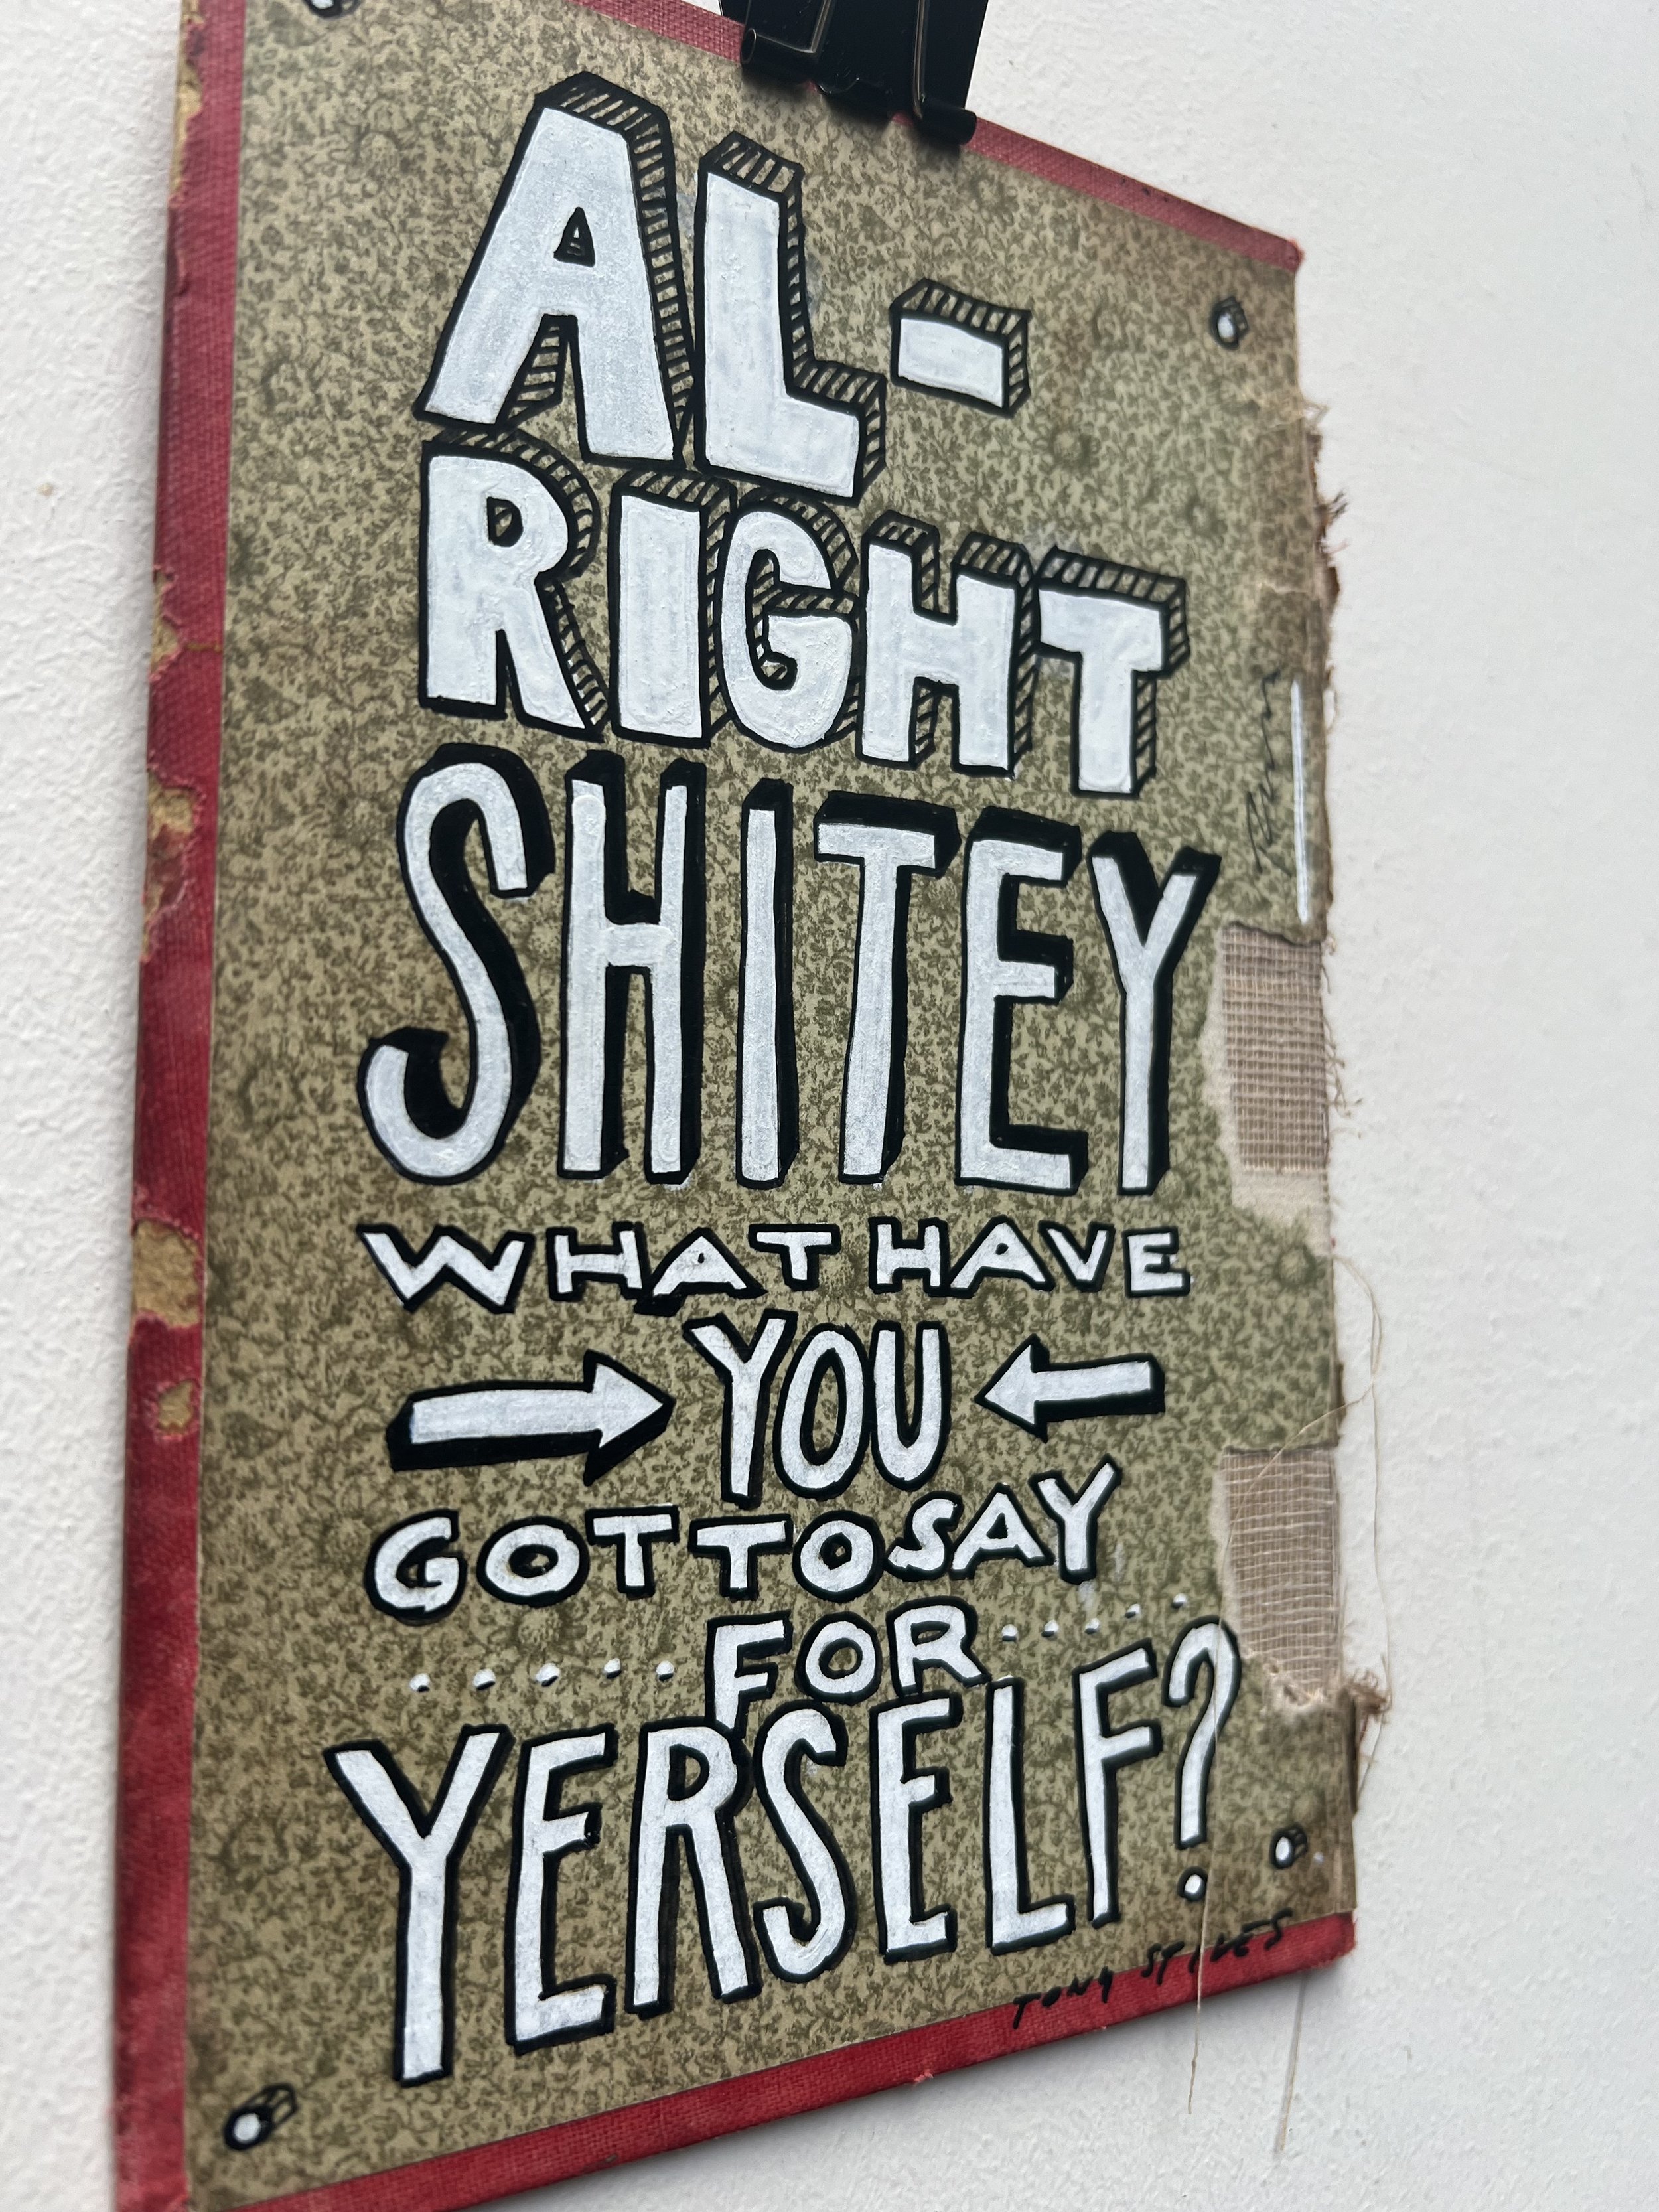 AL-
RIGHT
SHITEY
WHAT HAVE
YOU
GOT TO SAY
FOR
YERSELF?
TONY STILES